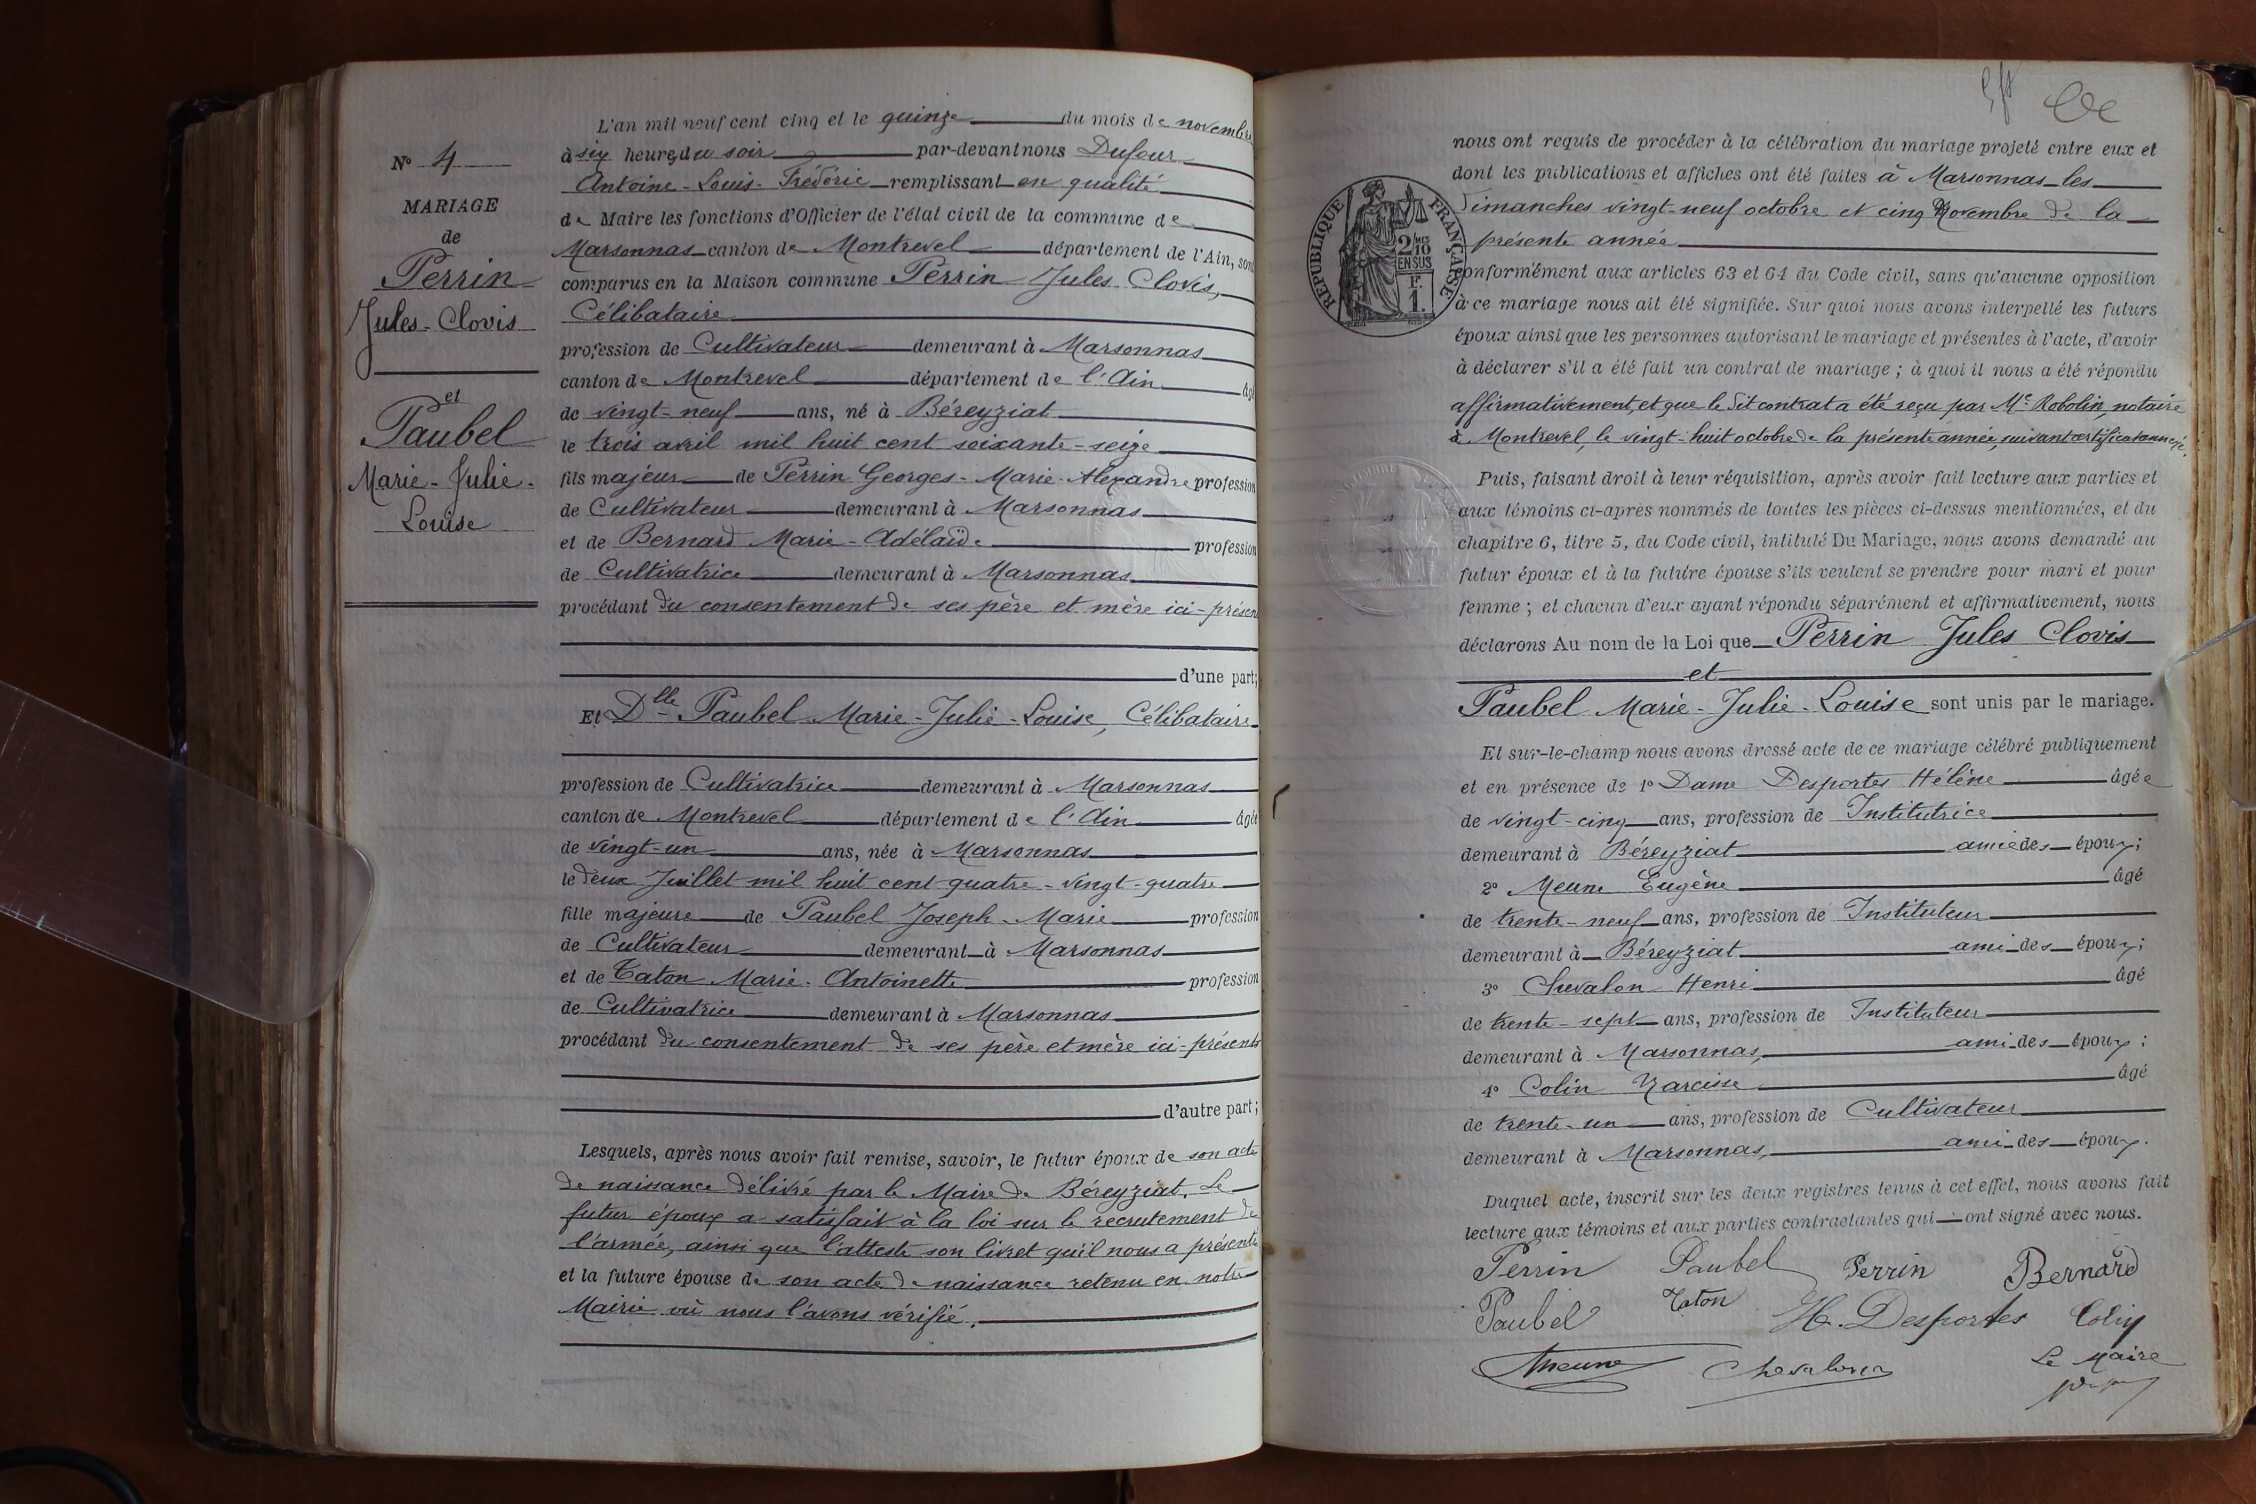 N° 4
MARIAGE
de
Perrin
Jules-Clovis
et
Paubel
Marie-Julie-
Louise
L'an mil neuf cent cinq et le quinze du mois de novembre
à six heures du soir par-devant nous Dufour
Antoine-Louis-Frédéric remplissant en qualité
de Maire les fonctions d'Officier de l'état civil de la commune de
Marsonnas canton de Montrevel département de l'Ain, sont
comparus en la Maison commune Perrin Jules Clovis,
Célibataire
profession de Cultivateur demeurant à Marsonnas
canton de Montrevel département de l'Ain âgé
de vingt-neuf ans, né à Béreyziat
le trois avril mil huit cent soixante-seize
fils majeur de Perrin Georges-Marie-Alexandre profession
de Cultivateur demeurant à Marsonnas
et de Bernard Marie-Adélaïde profession
de Cultivatrice demeurant à Marsonnas
procédant du consentement de ses père et mère ici-présen
d'une part;
Et Dlle Paubel Marie-Julie-Louise, Célibataire
profession de Cultivatrice demeurant à Marsonnas
canton de Montrevel département de l'Ain âgée
de vingt-un ans, née à Marsonnas
le deux Juillet mil huit cent quatre-vingt-quatre
fille majeure de Paubel Joseph-Marie profession
de Cultivateur demeurant à Marsonnas
et de Taton Marie-Antoinette profession
de Cultivatrice demeurant à Marsonnas
procédant du consentement de ses père et mère ici-présents
d'autre part;
Lesquels, après nous avoir fait remise, savoir, le futur époux de son acte
de naissance délivré par le Maire de Béreyziat. Le
futur époux a satisfait à la loi sur le recrutement de
l'armée, ainsi que l'atteste son livret qu'il nous a présenté
et la future épouse de son acte de naissance retenu en notre
Mairie où nous l'avons vérifié.
nous ont requis de procéder à la célébration du mariage projeté entre eux et
dont les publications et affiches ont été faites à Marsonnas les
Dimanches vingt-neuf octobre et cinq Novembre de la
présente année
conformément aux articles 63 et 64 du Code civil, sans qu'aucune opposition
à ce mariage nous ait été signifiée. Sur quoi nous avons interpellé les futurs
époux ainsi que les personnes autorisant le mariage et présentes à l'acte, d'avoir
à déclarer s'il a été fait un contrat de mariage; à quoi il nous a été répondu
affirmativement, et que le dit contrat a été reçu par Me Robolin, notaire
à Montrevel, le vingt-huit octobre de la présente année, suivant certificat annexé.
REPUBLIQUE FRANÇAISE
2/10
EN SUS
F.
1.
Puis, faisant droit à leur réquisition, après avoir fait lecture aux parties et
aux témoins ci-après nommés de toutes les pièces ci-dessus mentionnées, et du
chapitre 6, titre 5, du Code civil, intitulé Du Mariage, nous avons demandé au
futur époux et à la future épouse s'ils veulent se prendre pour mari et pour
femme; et chacun d'eux ayant répondu séparément et affirmativement, nous
déclarons Au nom de la Loi que Perrin Jules Clovis
et
Paubel Marie-Julie-Louise sont unis par le mariage.
Et sur-le-champ nous avons dressé acte de ce mariage célébré publiquement
et en présence de 1° Dame Desportes Hélène âgée
de vingt-cinq ans, profession de Institutrice
demeurant à Béreyziat amie des époux;
2° Meune Eugène âgé
de trente-neuf ans, profession de Instituteur
demeurant à Béreyziat ami des époux;
3° Chevalon Henri âgé
de trente-sept ans, profession de Instituteur
demeurant à Marsonnas, ami des époux;
4° Colin Narcisse âgé
de trente-un ans, profession de Cultivateur
demeurant à Marsonnas, ami des époux.
Duquel acte, inscrit sur les deux registres tenus à cet effet, nous avons fait
lecture aux témoins et aux parties contractantes qui ont signé avec nous.
Perrin Paubel Perrin Bernard
Paubel Taton H. Desportes Colin
Meune Chevalon Le Maire